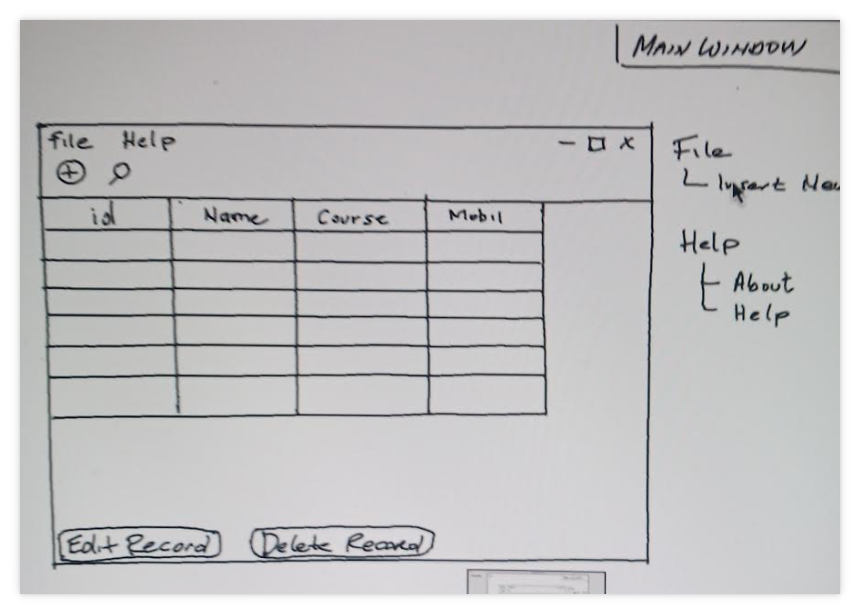 MAIN WINDOW
File Help - □ x
id Name Course Mobil
Edit Record Delete Record
File
Insert New
Help
About
Help